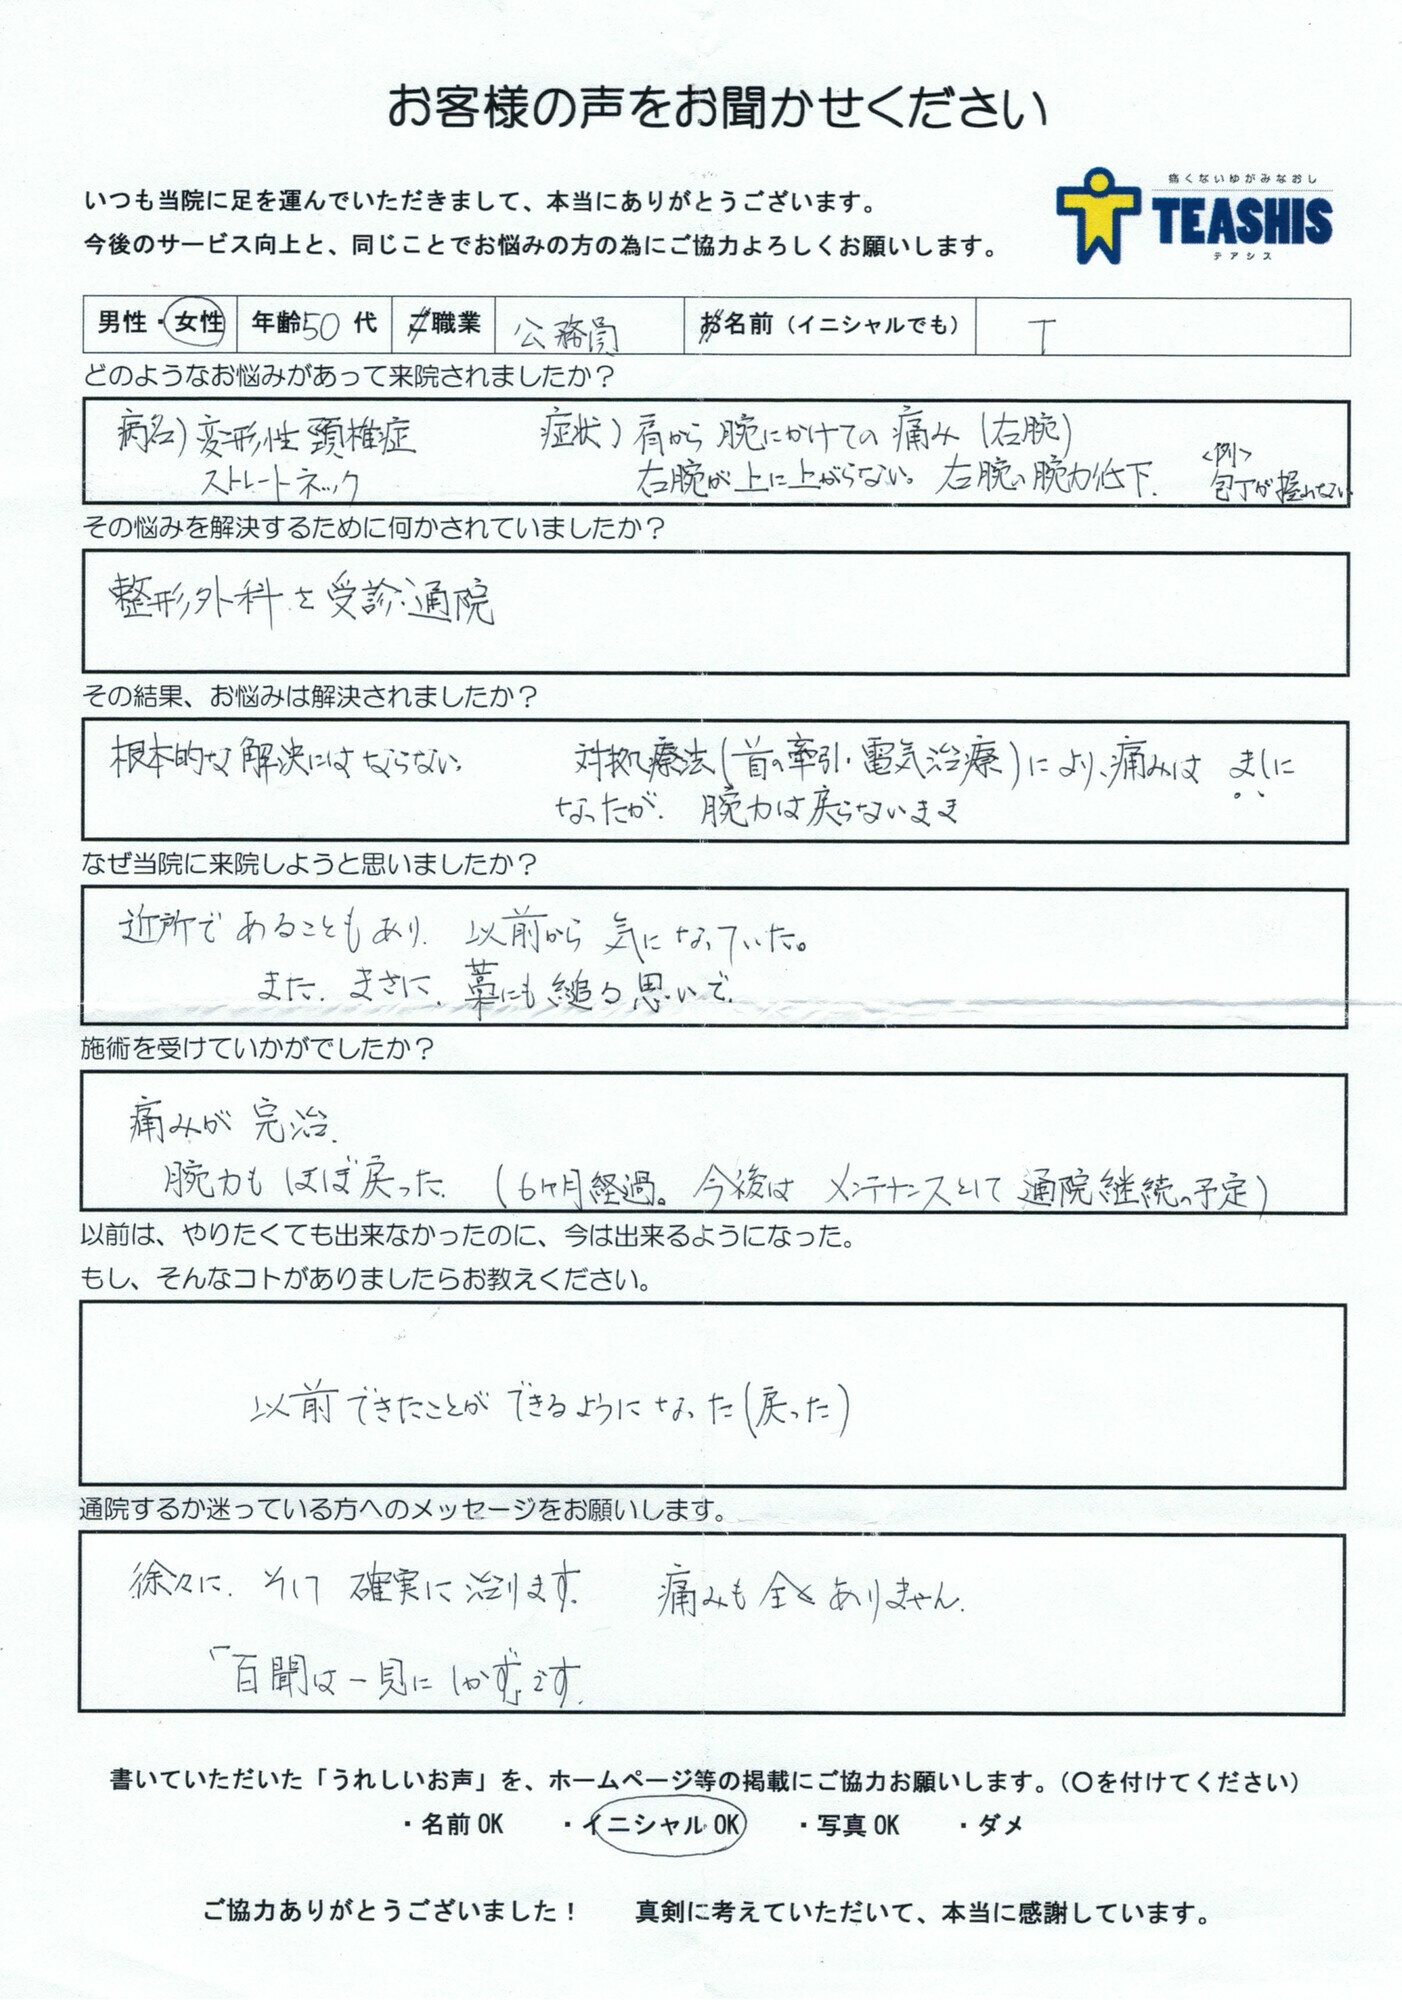 お客様の声をお聞かせください
いつも当院に足を運んでいただきまして、本当にありがとうございます。
今後のサービス向上と、同じことでお悩みの方の為にご協力よろしくお願いします。
痛くないゆがみなおし
TEASHIS
テアシス
男性・女性 年齢50代 ご職業 公務員 お名前（イニシャルでも） T
どのようなお悩みがあって来院されましたか？
病名）変形性頸椎症 症状）肩から腕にかけての痛み（右腕）
ストレートネック 右腕が上に上がらない。右腕の腕力低下. <例> 包丁が握れない
その悩みを解決するために何かされていましたか？
整形外科を受診・通院
その結果、お悩みは解決されましたか？
根本的な解決にはならない。 対処療法（首の牽引・電気治療）により、痛みは ましに
なったが、腕力は戻らないまま
なぜ当院に来院しようと思いましたか？
近所であることもあり、以前から気になっていた。
また、まさに、藁にも縋る思いで、
施術を受けていかがでしたか？
痛みが完治。
腕力もほぼ戻った。（6ヶ月経過。今後はメンテナンスとして通院継続の予定）
以前は、やりたくても出来なかったのに、今は出来るようになった。
もし、そんなコトがありましたらお教えください。
以前できたことができるようになった（戻った）
通院するか迷っている方へのメッセージをお願いします。
徐々に、そして確実に治ります。 痛みも全くありません。
「百聞は一見にしかず」です。
書いていただいた「うれしいお声」を、ホームページ等の掲載にご協力お願いします。（〇を付けてください）
・名前 OK ・イニシャル OK ・写真 OK ・ダメ
ご協力ありがとうございました！ 真剣に考えていただいて、本当に感謝しています。